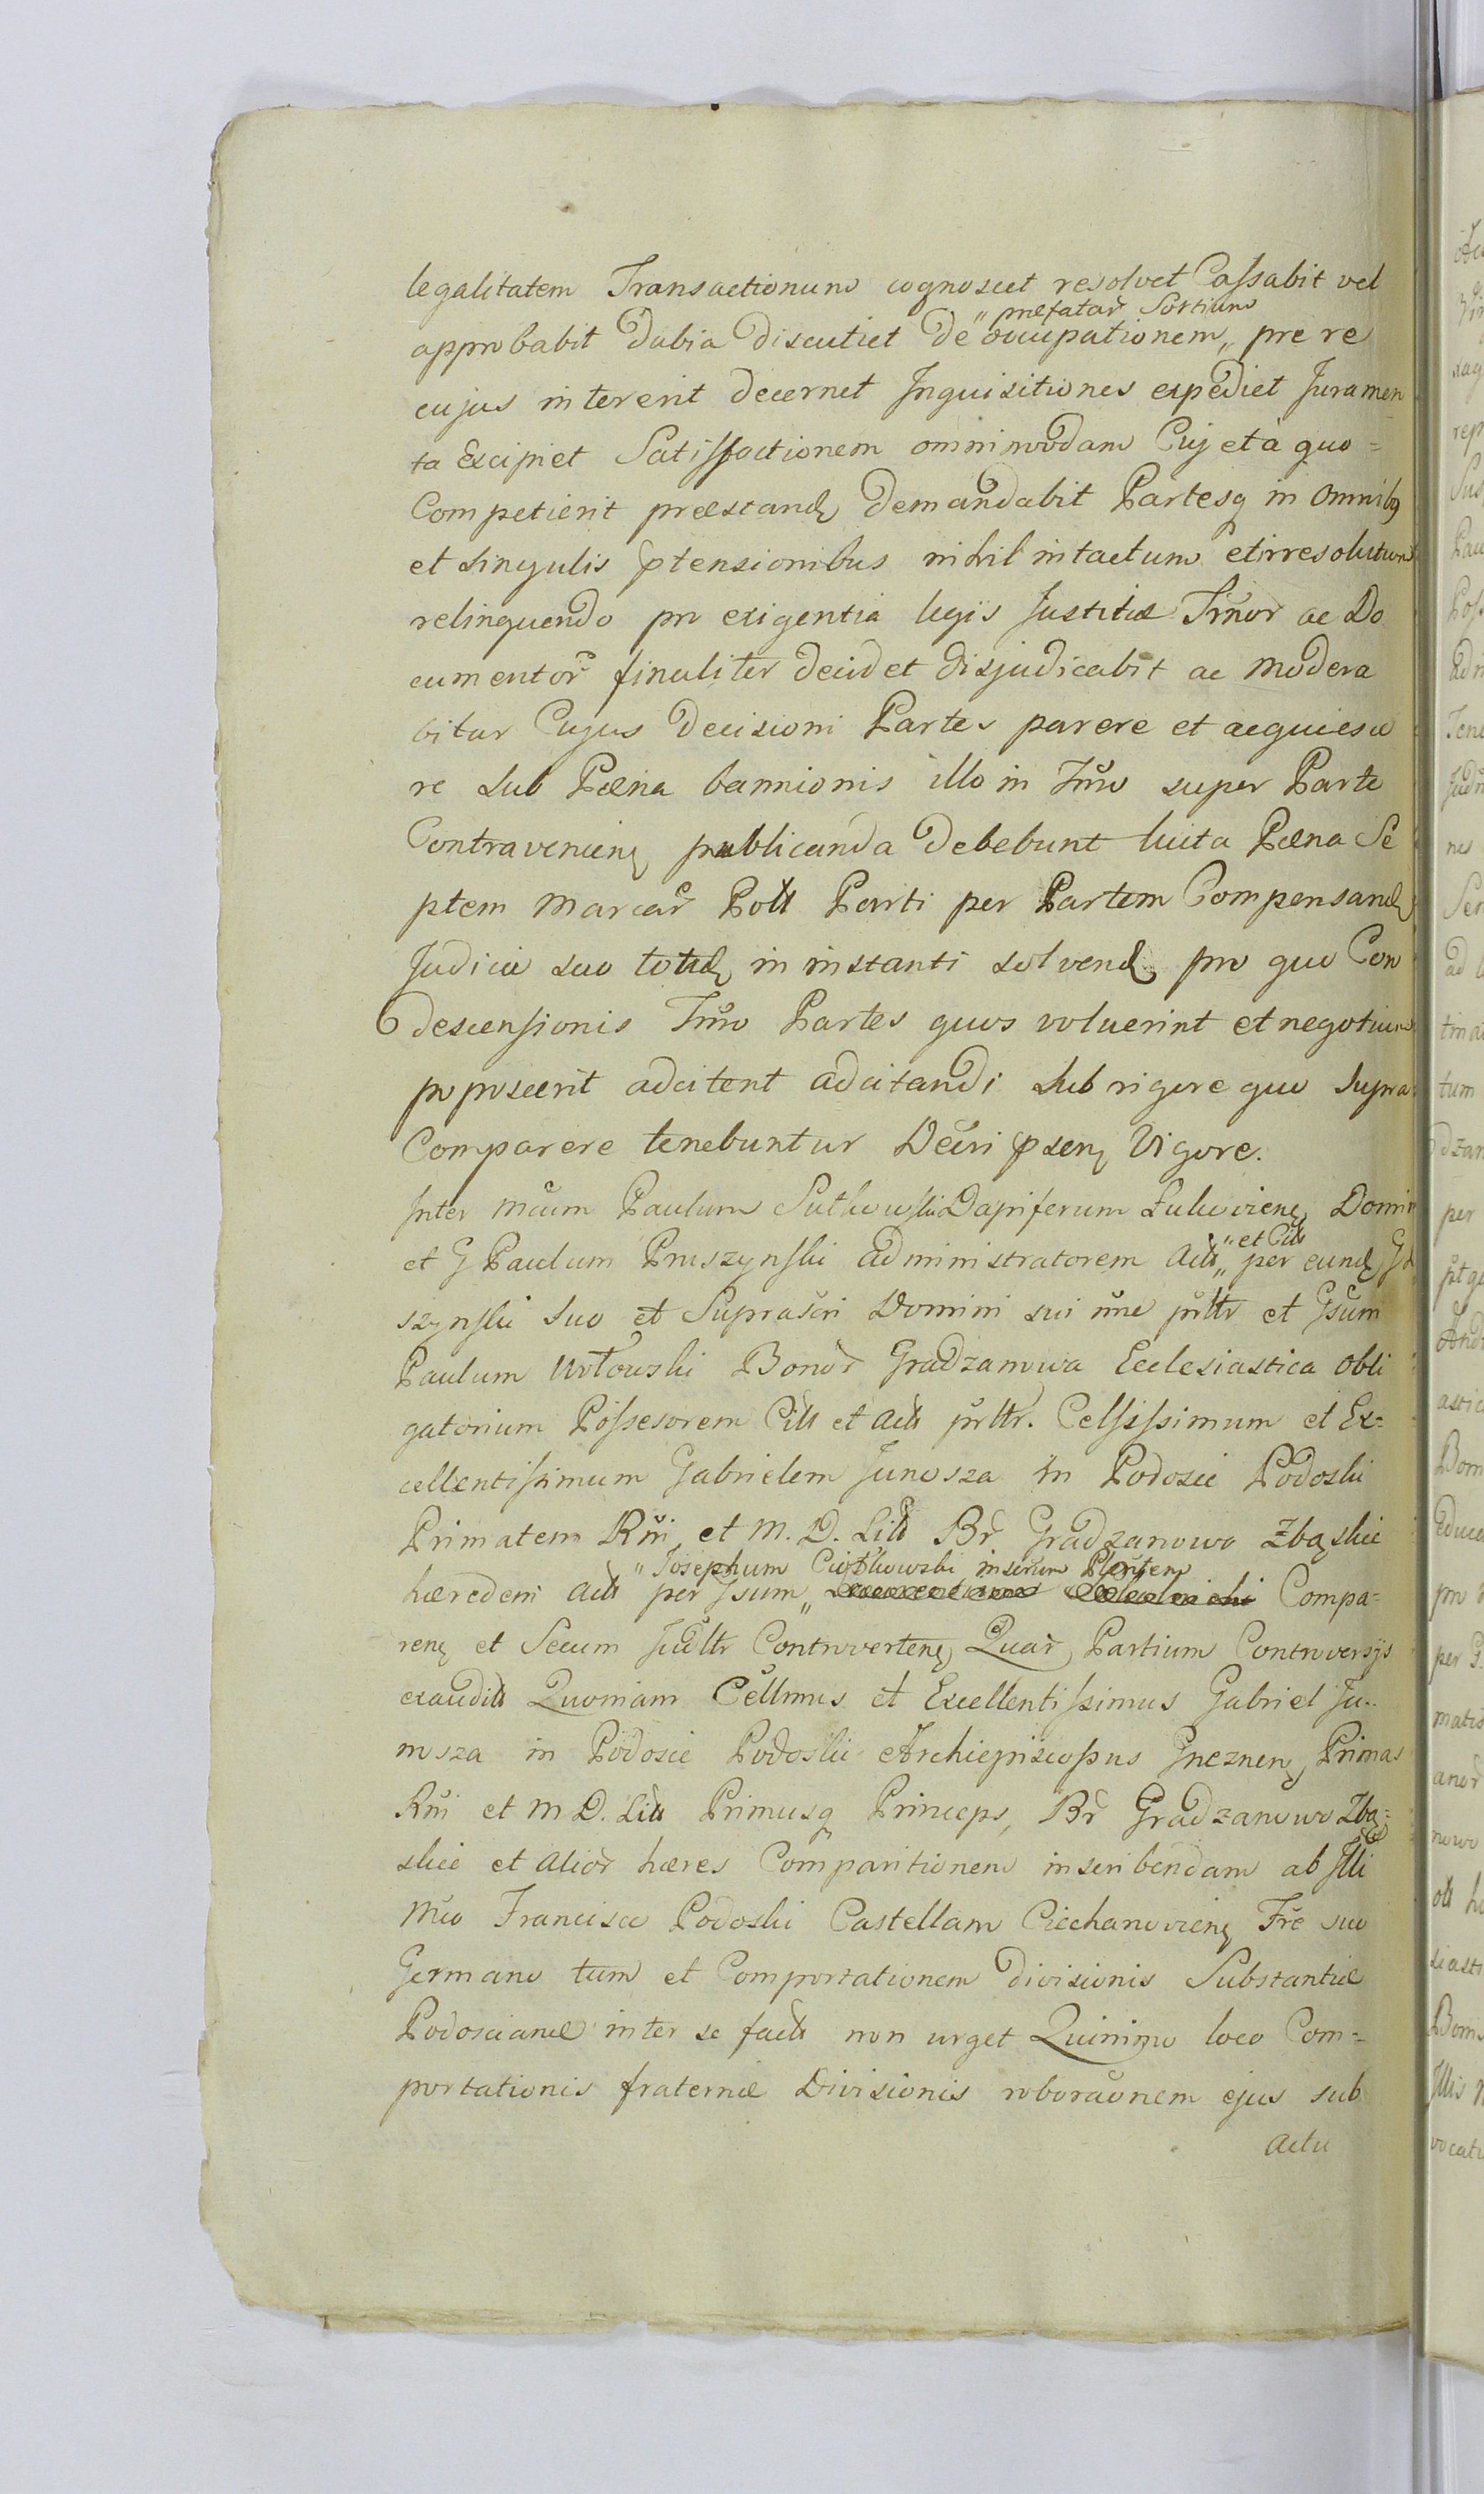 legalitatem Transactionum cognoscet resolvet Cassabit vel
„ præfatar Sortium
approbabit Dubia Discutiet De occupationem„ pre re
cujus intererit decernet Inquisitiones expediet Juramen
ta Excipiet Satisfactionem omnimodam Cuj et a quo=
Competierit præstand Demandabit Partesq in omnibq
et singulis ptensionibus nihil intactum et irresolutum
relinquendo pro exigentia legis Justitiæ Trnor ac Do
cumentor finaliter decidet disjudicabit ac modera
bitur Cujus Decisioni Partes parere et acquiesce
re sub Pæna bannionis illo in Tmo super Parte
Contravenien publicanda Debebunt luita Pæna Se
ptem marcar Poll Parti per Partem Compensand
Judicio suo totid in instanti solvend pro quo Con
descensionis Tmo Partes quos voluerint et negotium
poposcerit adcitent adcitandi sub rigore quo supra
Comparere tenebuntur Decri psen Vigore.
Inter mcum Paulum Sutkowski Dapiferum Łukovien Domin
„ et Citt
et G Paulum Pruszynski administratorem actt„ per eund G
szynski suo et Suprascri Domini sui nne prlltr et Gsum
Paulum Wrłowski Bonor Gradzanowa Ecclesiastica obli
gatorium Possesorem Citt et actt prlltr. Celsissimum et Ex=
cellentissimum Gabrielem Junosza in Podosie Podoski
Primatem Rni et M. D. Litt Br Gradzanowo Zbąskie
„ Josephum Ciotkowski inserum Plentem
hæredem actt per Gsum„ Compa=
ren et Secum Judltr Controverten Quar Partium Controversijs
exauditt Quoniam Cellmus et Excellentissimus Gabriel Ju..
nosza in Podosie Podoski Archiepiscopus Gneznen Primas
Rni et M D. Litt Primusq Princeps, Br Gradzanowo Zbą=
skie et alior hæres Comparitionem inscribendam ab Illi
Mco Francisco Podoski Castellam Ciechanovien Fre suo
Germano tum et Comportationem divisionis Substantiæ
Podoscianæ inter se factt non urget Quinimo loco Com=
portationis fraternæ Divisionis roboraonem ejus sub
actu